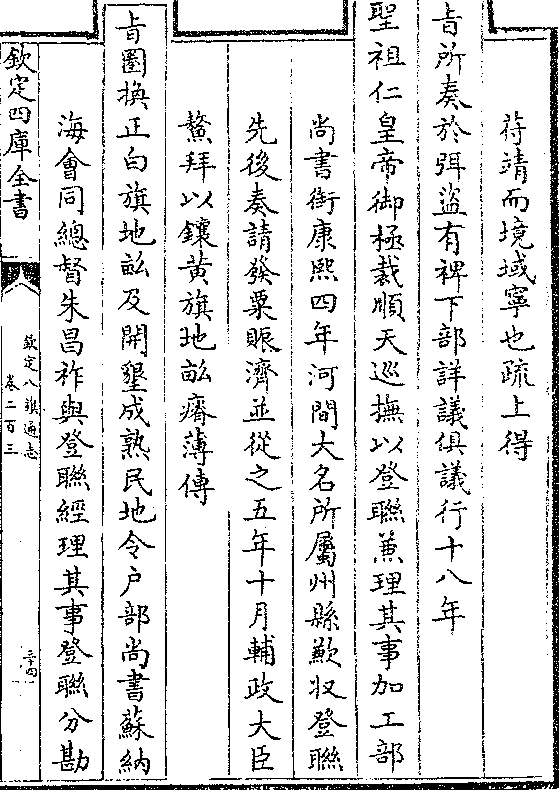 苻靖而境域寧也疏上得
旨所奏於弭盜有裨下部詳議俱議行十八年
聖祖仁皇帝御極裁順天巡撫以登聯兼理其事加工部
尚書銜康熙四年河間大名所屬州縣歉收登聯
先後奏請發粟賑濟並從之五年十月輔政大臣
鰲拜以鑲黃旗地畝瘠薄傳
旨圈換正白旗地畝及開墾成熟民地令户部尚書蘇納
海會同總督朱昌祚與登聯經理其事登聯分勘
欽定四庫全書
欽定八旗通志
卷二百三
三十四